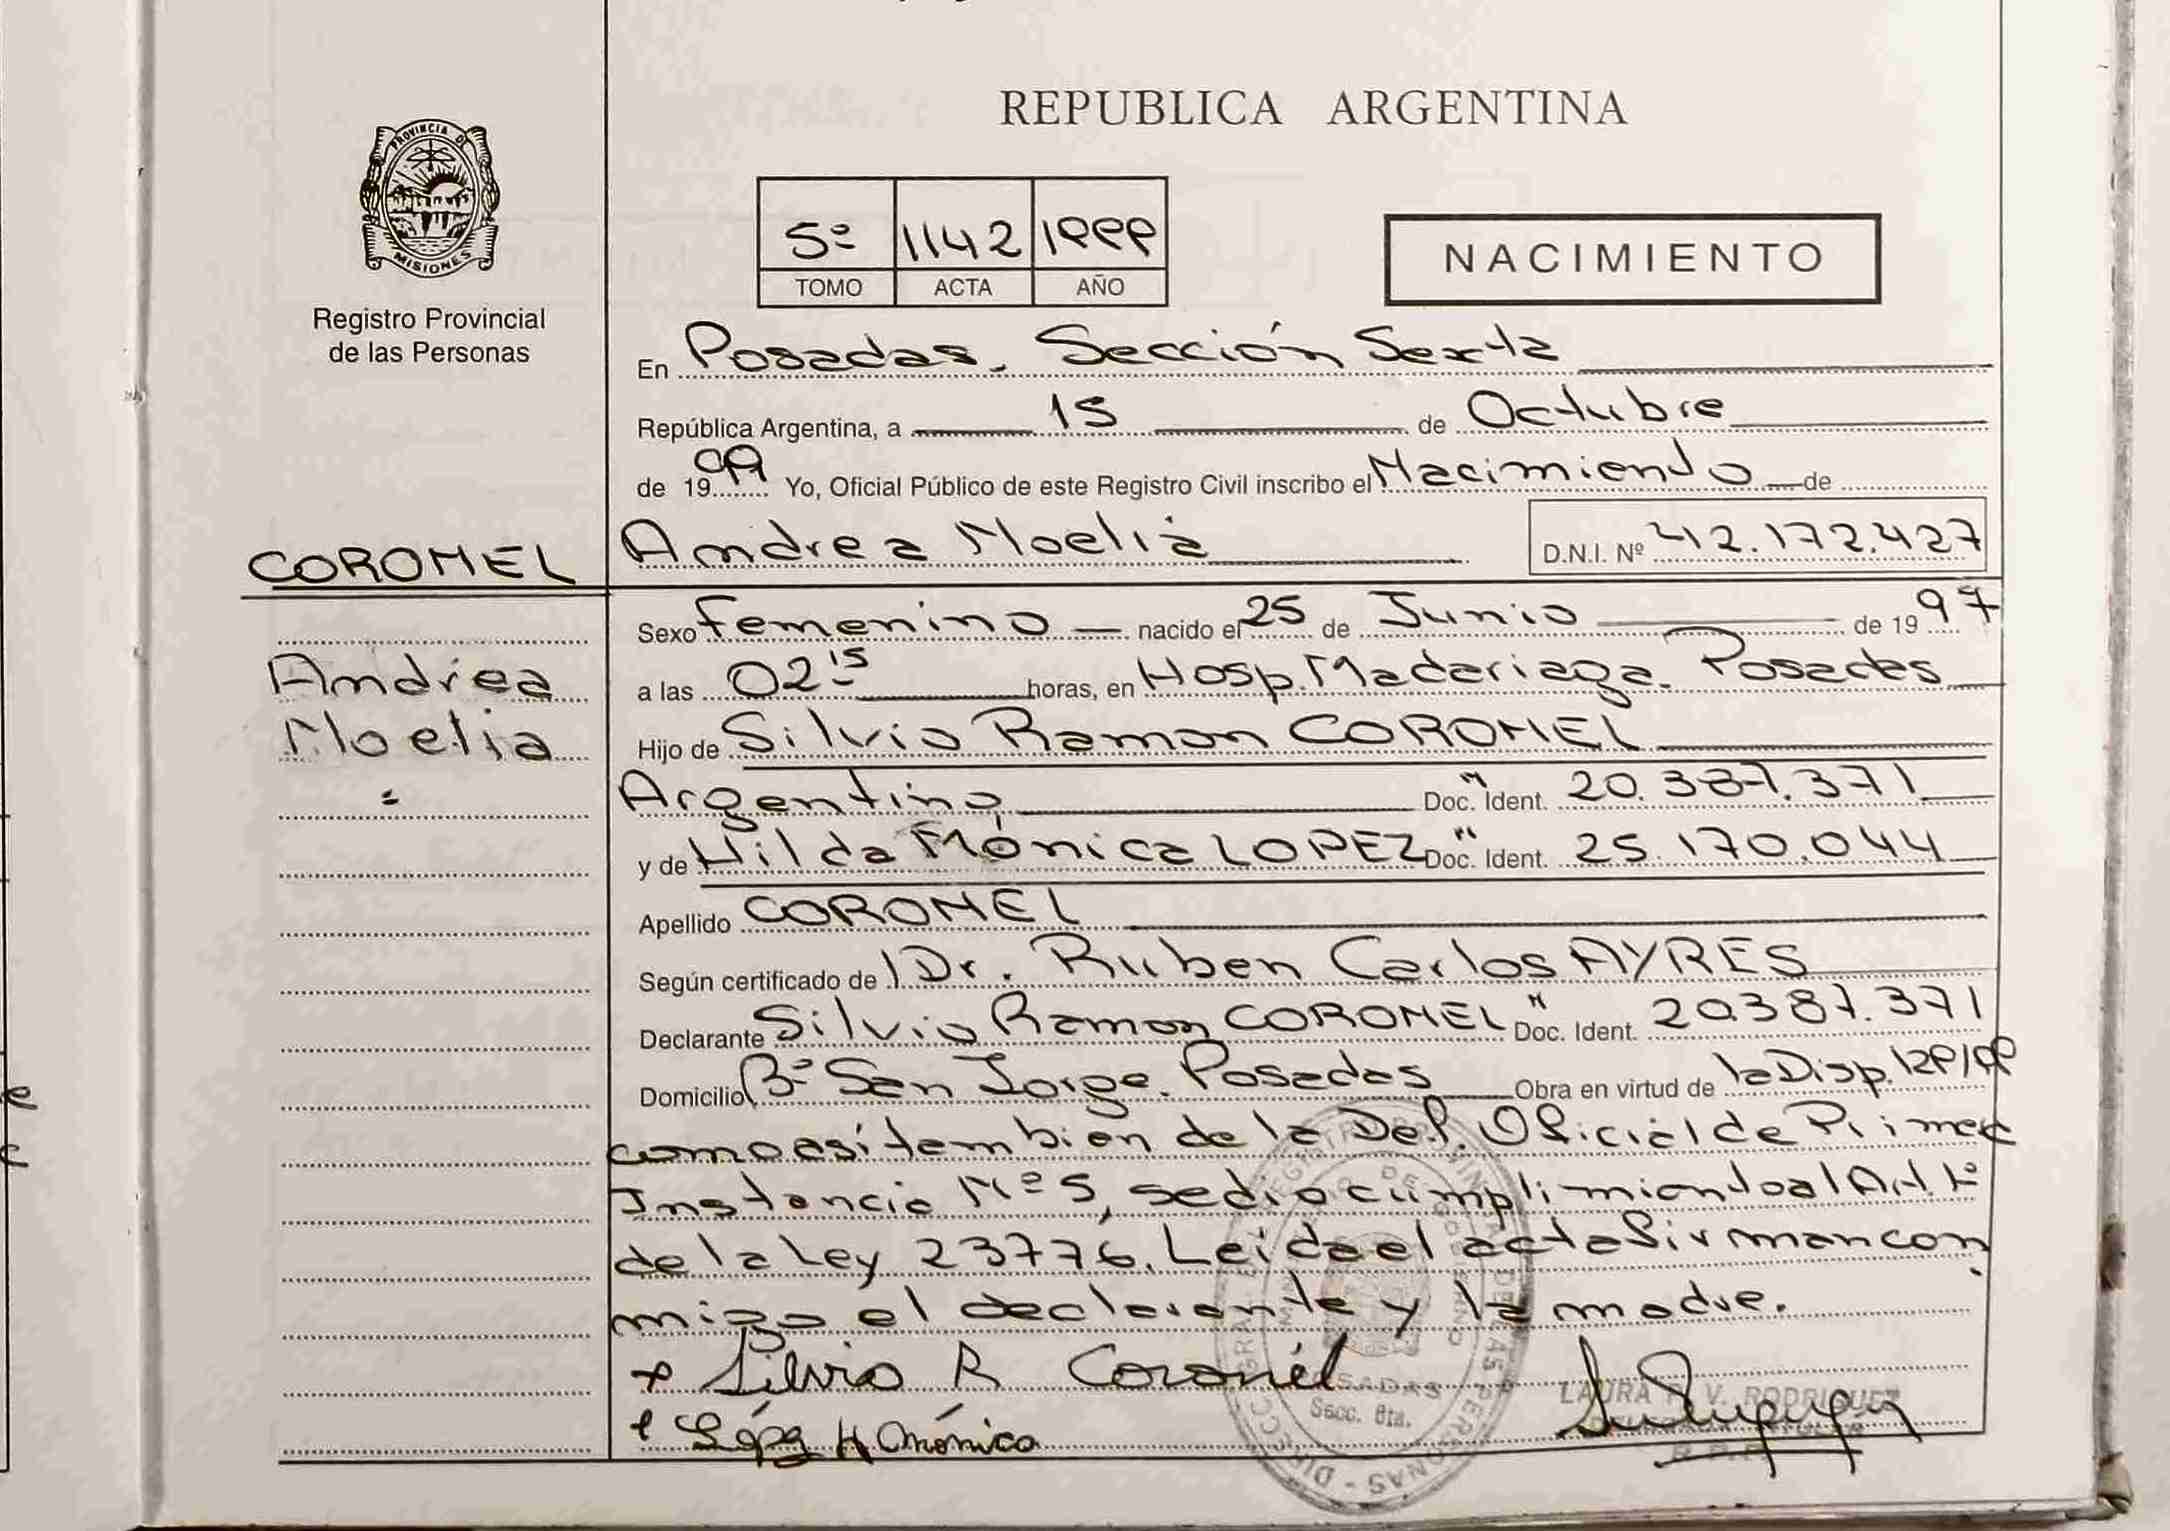 REPUBLICA ARGENTINA
PROVINCIA DE
MISIONES
Registro Provincial
de las Personas
5º 1142 1999
TOMO ACTA AÑO
NACIMIENTO
En Posadas. Sección Sexta
República Argentina, a 15 de Octubre
de 1999 Yo, Oficial Público de este Registro Civil inscribo el Nacimiento de
CORONEL Andrea Noelia D.N.I. Nº 42.172.427
Sexo femenino nacido el 25 de Junio de 1997
Andrea
Noelia
a las 02 15 horas, en Hosp. Madariaga. Posadas
Hijo de Silvio Ramon CORONEL
Argentino Doc. Ident. 20.387.371
y de Hilda Mónica LOPEZ Doc. Ident. 25.170.044
Apellido CORONEL
Según certificado de Dr. Ruben Carlos AYRES
Declarante Silvio Ramon CORONEL Doc. Ident. 20.387.371
Domicilio Bº San Jorge. Posadas Obra en virtud de la Disp. 129/99
como así tembien de la Def. Oficial de Primer
Instancia Nº 5, se dio cumplimiento al Art. 1º
de la Ley 23776. Leida el acta firman con
migo el declarante y la madre.
Silvio R Coronél
López H Mónica
POSADAS
Secc. 6ta.
LAURA V. RODRIGUEZ